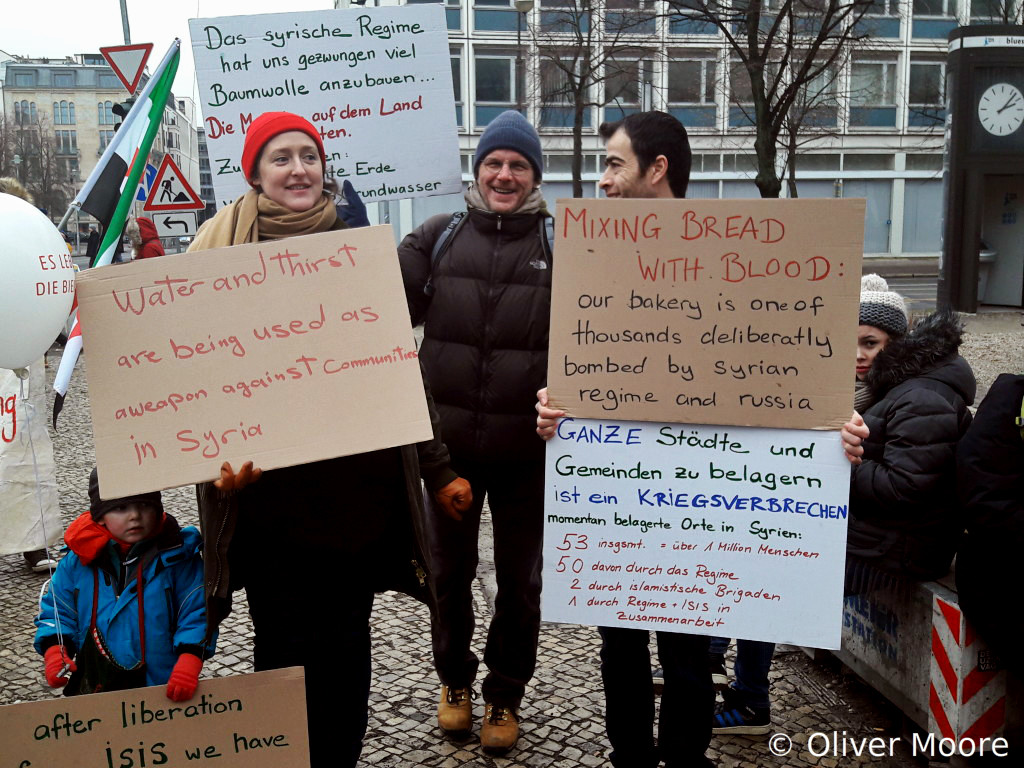 Das syrische Regime
hat uns gezwungen viel
Baumwolle anzubauen...
Die auf dem Land
ten.
Zu :
te Erde
rundwasser
ES LE
DIE BIE
Water and thirst
are being used as
aweapon against Communities
in Syria
MIXING BREAD
WITH. BLOOD:
our bakery is one of
thousands deliberatly
bombed by syrian
regime and russia
GANZE Städte und
Gemeinden zu belagern
ist ein KRIEGSVERBRECHEN
momentan belagerte Orte in Syrien:
53 insgsmt. = über 1 Million Menschen
50 davon durch das Regime
2 durch islamistische Brigaden
1 durch Regime + ISIS in
Zusammenarbeit
after liberation
isis we have
blues
STATION
© Oliver Moore